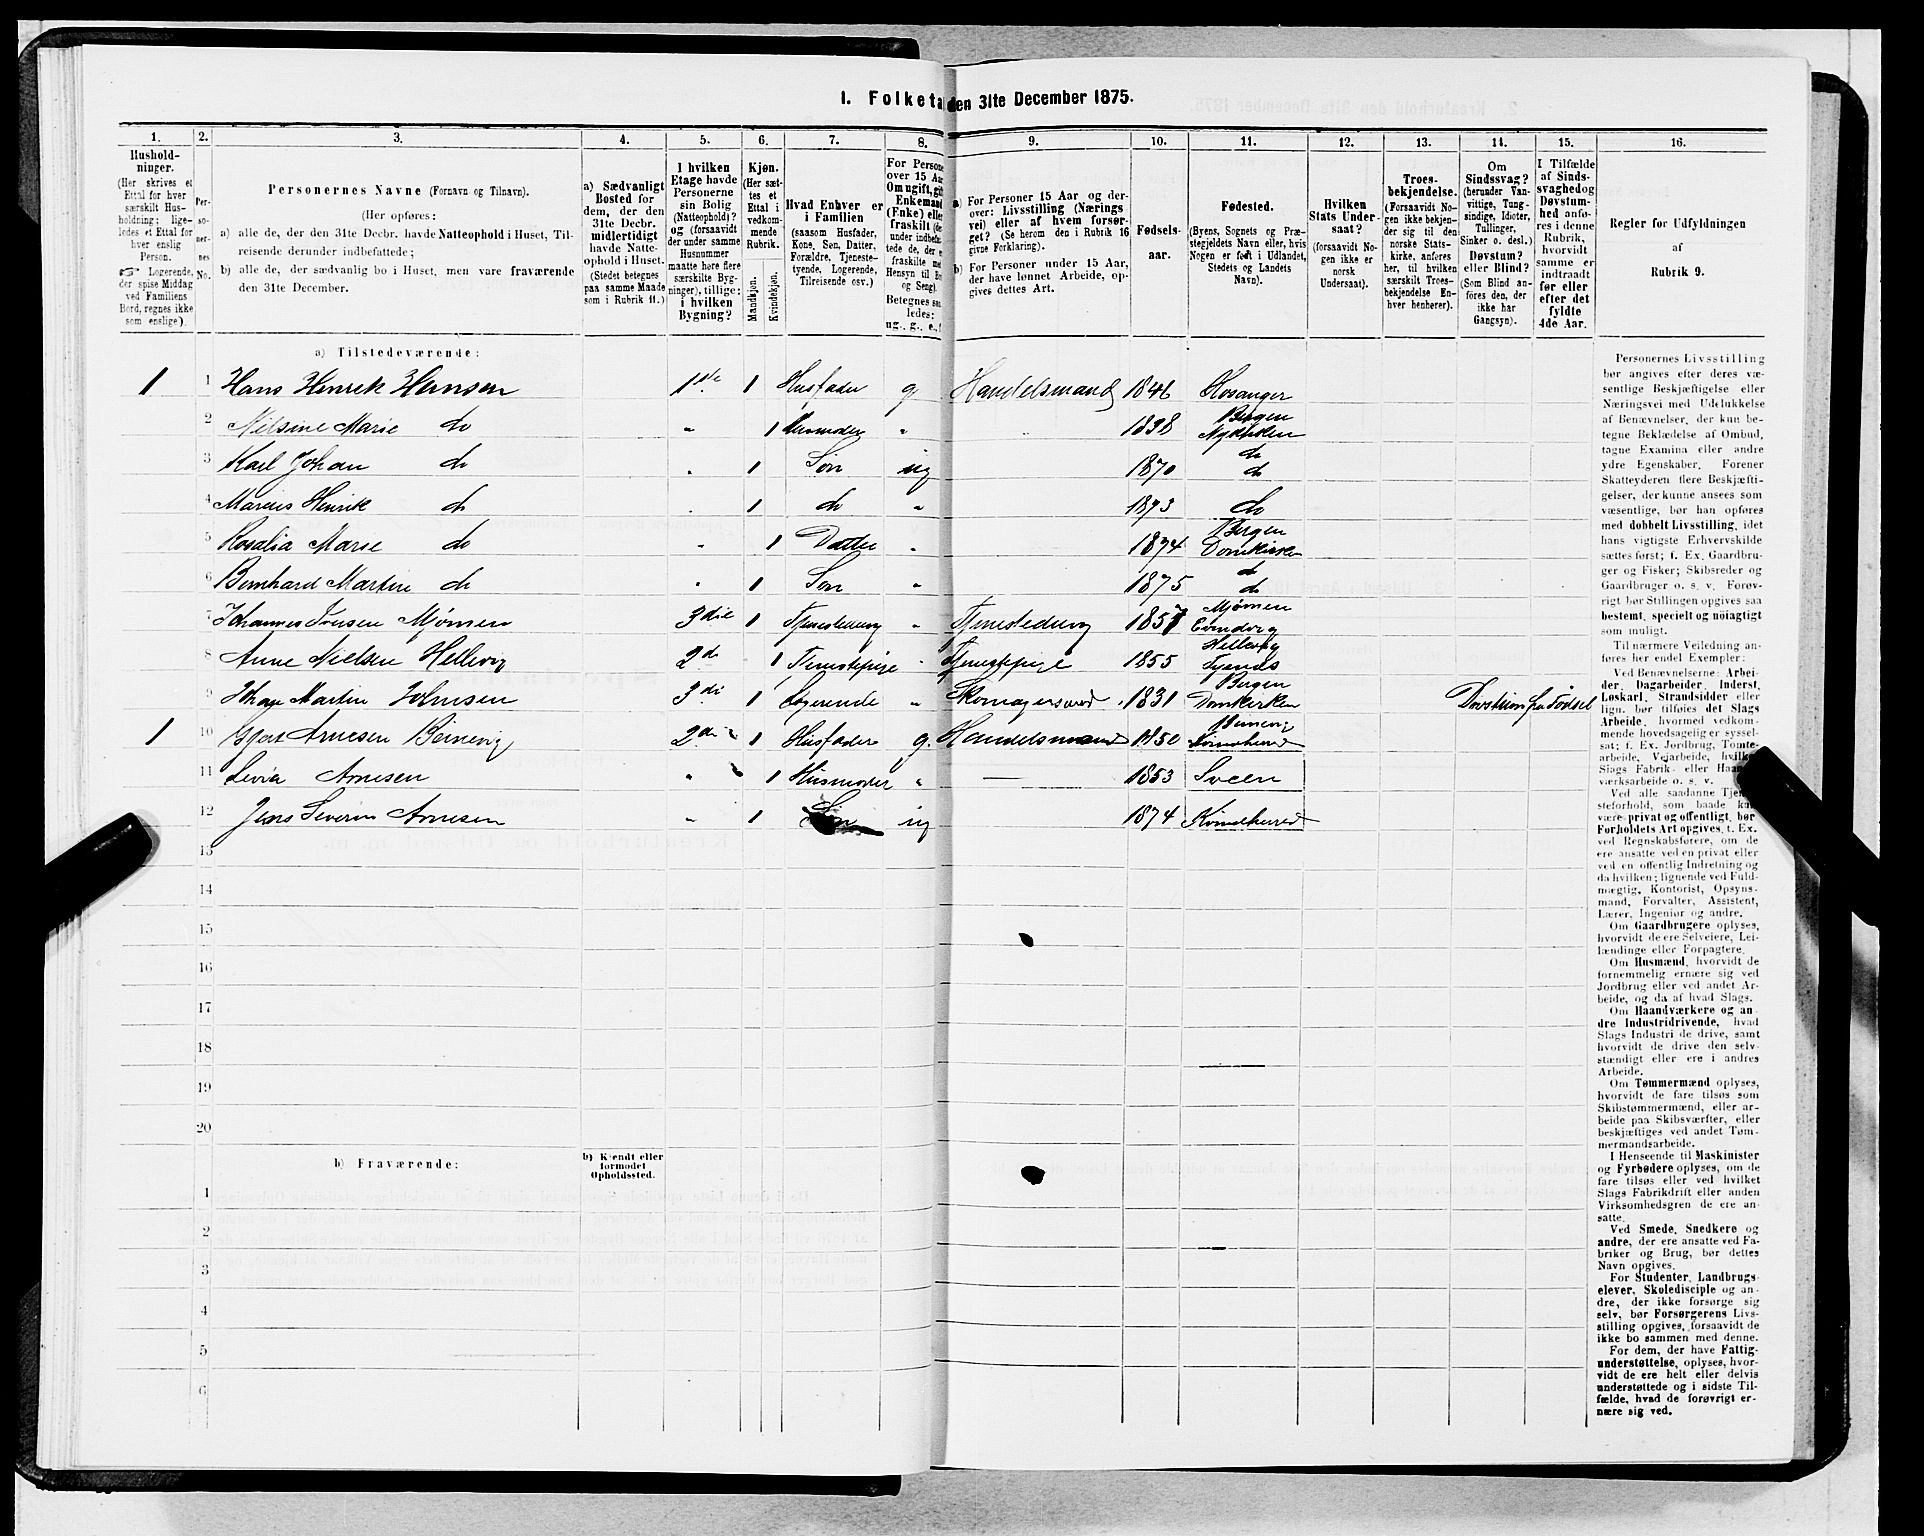 1. Folketæ
den 31te December 1875.
1. 2. 3. 4. 5. 6. 7. 8. 9. 10. 11. 12. 13. 14. 15. 16.
Hushold-
ninger.
(Her skrives et
Ettal for hver
særskilt Hus-
holdning; lige-
ledes et Ettal for
hver enslig
Person.
☞ Logerende,
der spise Middag
ved Familiens
Bord, regnes ikke
som enslige).
Per-
so-
ner-
nes
No.
Personernes Navne (Fornavn og Tilnavn).
(Her opføres:
a) alle de, der den 31te Decbr. havde Natteophold i Huset, Til-
reisende derunder indbefattede;
b) alle de, der sædvanlig bo i Huset, men vare fraværende
den 31te December.
a) Sædvanligt
Bosted for
dem, der den
31te Decbr.
midlertidigt
havde Natte-
ophold i Huset.
(Stedet betegnes
paa samme Maade
som i Rubrik 11.)
I hvilken
Etage havde
Personerne
sin Bolig
(Natteophold)?
og (forsaavidt
der under samme
Husnummer
maatte høre flere
særskilte Byg-
ninger), tillige:
i hvilken
Bygning?
Kjøn.
(Her sæt-
tes et
Ettal i
vedkom-
mende
Rubrik.
Mandkjøn.
Kvindekjøn.
Hvad Enhver er
i Familien
(saasom Husfader,
Kone, Søn, Datter,
Forældre, Tjeneste-
tyende, Logerende,
Tilreisende osv.)
For Persone
over 15 Aa
Om ugift, gif
Enkemand
(Enke) elle
fraskilt (de
under indbefa
tede de, der e
fraskilte me
Hensyn til Bo
og Seng).
Betegnes saa
ledes:
ug., g., e., f
a) For Personer 15 Aar og der-
over: Livsstilling (Nærings
vei) eller af hvem forsør-
get? (Se herom den i Rubrik 16
givne Forklaring).
b) For Personer under 15 Aar,
der have lønnet Arbeide, op-
gives dettes Art.
Fødsels-
aar.
Fødested.
(Byens, Sognets og Præ-
stegjeldets Navn eller, hvis
Nogen er født i Udlandet,
Stedets og Landets
Navn).
Hvilken
Stats Under-
saat?
(forsaavidt No-
gen ikke er
norsk
Undersaat).
Troes-
bekjendelse.
(Forsaavidt No-
gen ikke bekjen-
der sig til den
norske Stats-
kirke, anføres
her, til hvilken
særskilt Troes-
bekjendelse En-
hver henhører).
Om
Sindssvag?
(herunder Van-
vittige, Tung-
sindige, Idioter,
Tullinger,
Sinker o. desl.)
Døvstum?
eller Blind?
(Som Blind an-
føres den, der
ikke har
Gangsyn).
I Tilfælde
af Sinds-
svaghed og
Døvstum-
hed anfø-
res i denne
Rubrik,
hvorvidt
samme er
indtraadt
før eller
efter det
fyldte
4de Aar.
Regler for Udfyldningen
af
Rubrik 9.
a) Tilstedeværende:
1 1 Hans Henrik Hansen 1ste 1 Husfader g Handelsmand 1846 Hosanger
2 Nilsine Marie do " 1 Husmoder " 1838 Bergen Nykirken
3 Karl Johan do " 1 Søn ug 1870 do do
4 Marius Henrik do " 1 do " 1873 do
5 Rosalia Marie do " 1 Datter " 1874 Bergen Domkirken
6 Bernhard Martin do " 1 Søn " 1875 do do
7 Johannes Iversen Mjømen 3die 1 Tjenestedreng " Tjenestedreng 1857 Mjømen Evindvig
8 Anne Nielsen Hellevig 2de 1 Tjenestepige " Tjenestepige 1855 Hellevig
9 Johan Martin Johnsen 3di 1 Logerende " Skomagersvend 1831 Bergen Domkirken Døvstum fra Fødsel
1 10 Gjert Arnesen 2de 1 Husfader g. Handelsmand 1850
11 Arnesen " 1 Husmoder " — 1853 Sveen
12 Jens Severin Arnesen " 1 Søn ug 1874 Kvindherred
13
14
15
16
17
18
19
20
b) Fraværende:
b) Kjendt eller
formodet
Opholdssted.
1
2
3
4
5
6
Personernes Livsstilling
bør angives efter deres væ-
sentlige Beskjæftigelse eller
Næringsvei med Udelukkelse
af Benævnelser, der kun be-
tegne Beklædelse af Ombud,
tagne Examina eller andre
ydre Egenskaber. Forener
Skatteyderen flere Beskjæfti-
gelser, der kunne ansees som
væsentlige, bør han opføres
med dobbelt Livsstilling, idet
hans vigtigste Erhvervskilde
sættes først; f. Ex. Gaardbru-
ger og Fisker; Skibsreder og
Gaardbruger o. s. v. Forøv-
rigt bør Stillingen opgives saa
bestemt, specielt og nøiagtigt
som muligt.
Til nærmere Veiledning an-
føres her endel Exempler:
Ved Benævnelserne: Arbei-
der, Dagarbeider, Inderst,
Løskarl, Strandsidder eller
lign. bør tilføies det Slags
Arbeide, hvormed vedkom-
mende hovedsagelig er syssel-
sat; f. Ex. Jordbrug, Tomte-
arbeide, Veiarbeide, hvilket
Slags Fabrik- eller Haand-
værksarbeide o. s. v.
Ved alle saadanne Tjene-
steforhold, som baade kan
være privat og offentligt, bør
Forholdets Art opgives, t. Ex.
ved Regnskabsførere, om de
ere ansatte ved en privat eller
ved en offentlig Indretning og
da hvilken; lignende ved Fuld-
mægtig, Kontorist, Opsyns-
mand, Forvalter, Assistent,
Lærer, Ingeniør og andre.
Om Gaardbrugere oplyses,
hvorvidt de ere Selveiere, Lei-
lændinge eller Forpagtere.
Om Husmænd, hvorvidt de
fornemmelig ernære sig ved
Jordbrug eller ved andet Ar-
beide, og da af hvad Slags.
Om Haandværkere og an
dre Industridrivende, hvad
Slags Industri de drive, samt
hvorvidt de drive den selv-
stændigt eller ere i andres
Arbeide.
Om Tømmermænd oplyses,
hvorvidt de fare tilsøs som
Skibstømmermænd, eller ar-
beide paa Skibsværfter, eller
beskjæftiges ved andet Tøm-
mermandsarbeide.
I Henseende til Maskinister
og Fyrbødere oplyses, om de
fare tilsøs eller ved hvilket
Slags Fabrikdrift eller anden
Virksomhedsgren de ere an-
satte.
Ved Smede, Snedkere og
andre, der ere ansatte ved Fa-
briker og Brug, bør dettes
Navn opgives.
For Studenter, Landbrugs-
elever, Skoledisciple og an-
dre, der ikke forsørge sig
selv, bør Forsørgerens Livs-
stilling opgives, forsaavidt de
ikke bo sammen med denne.
For dem, der have Fattig-
understøttelse, oplyses, hvor-
vidt de ere helt eller delvis
understøttede og i sidste Til-
fælde, hvad de forøvrigt er-
nære sig ved.